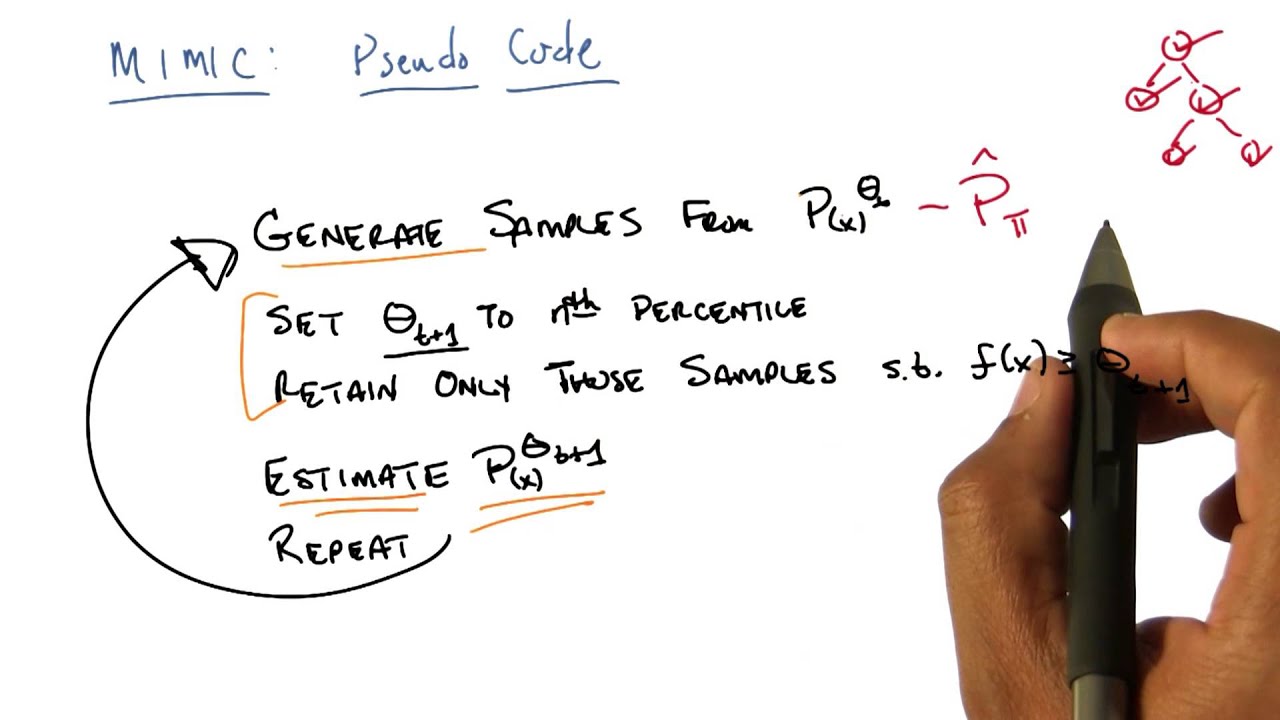 MIMIC: Pseudo Code
GENERATE SAMPLES FROM P(x)^θt ~ P̂π
SET θt+1 TO nth PERCENTILE
RETAIN ONLY THOSE SAMPLES s.t. f(x) ≥ θt+1
ESTIMATE P(x)^θt+1
REPEAT